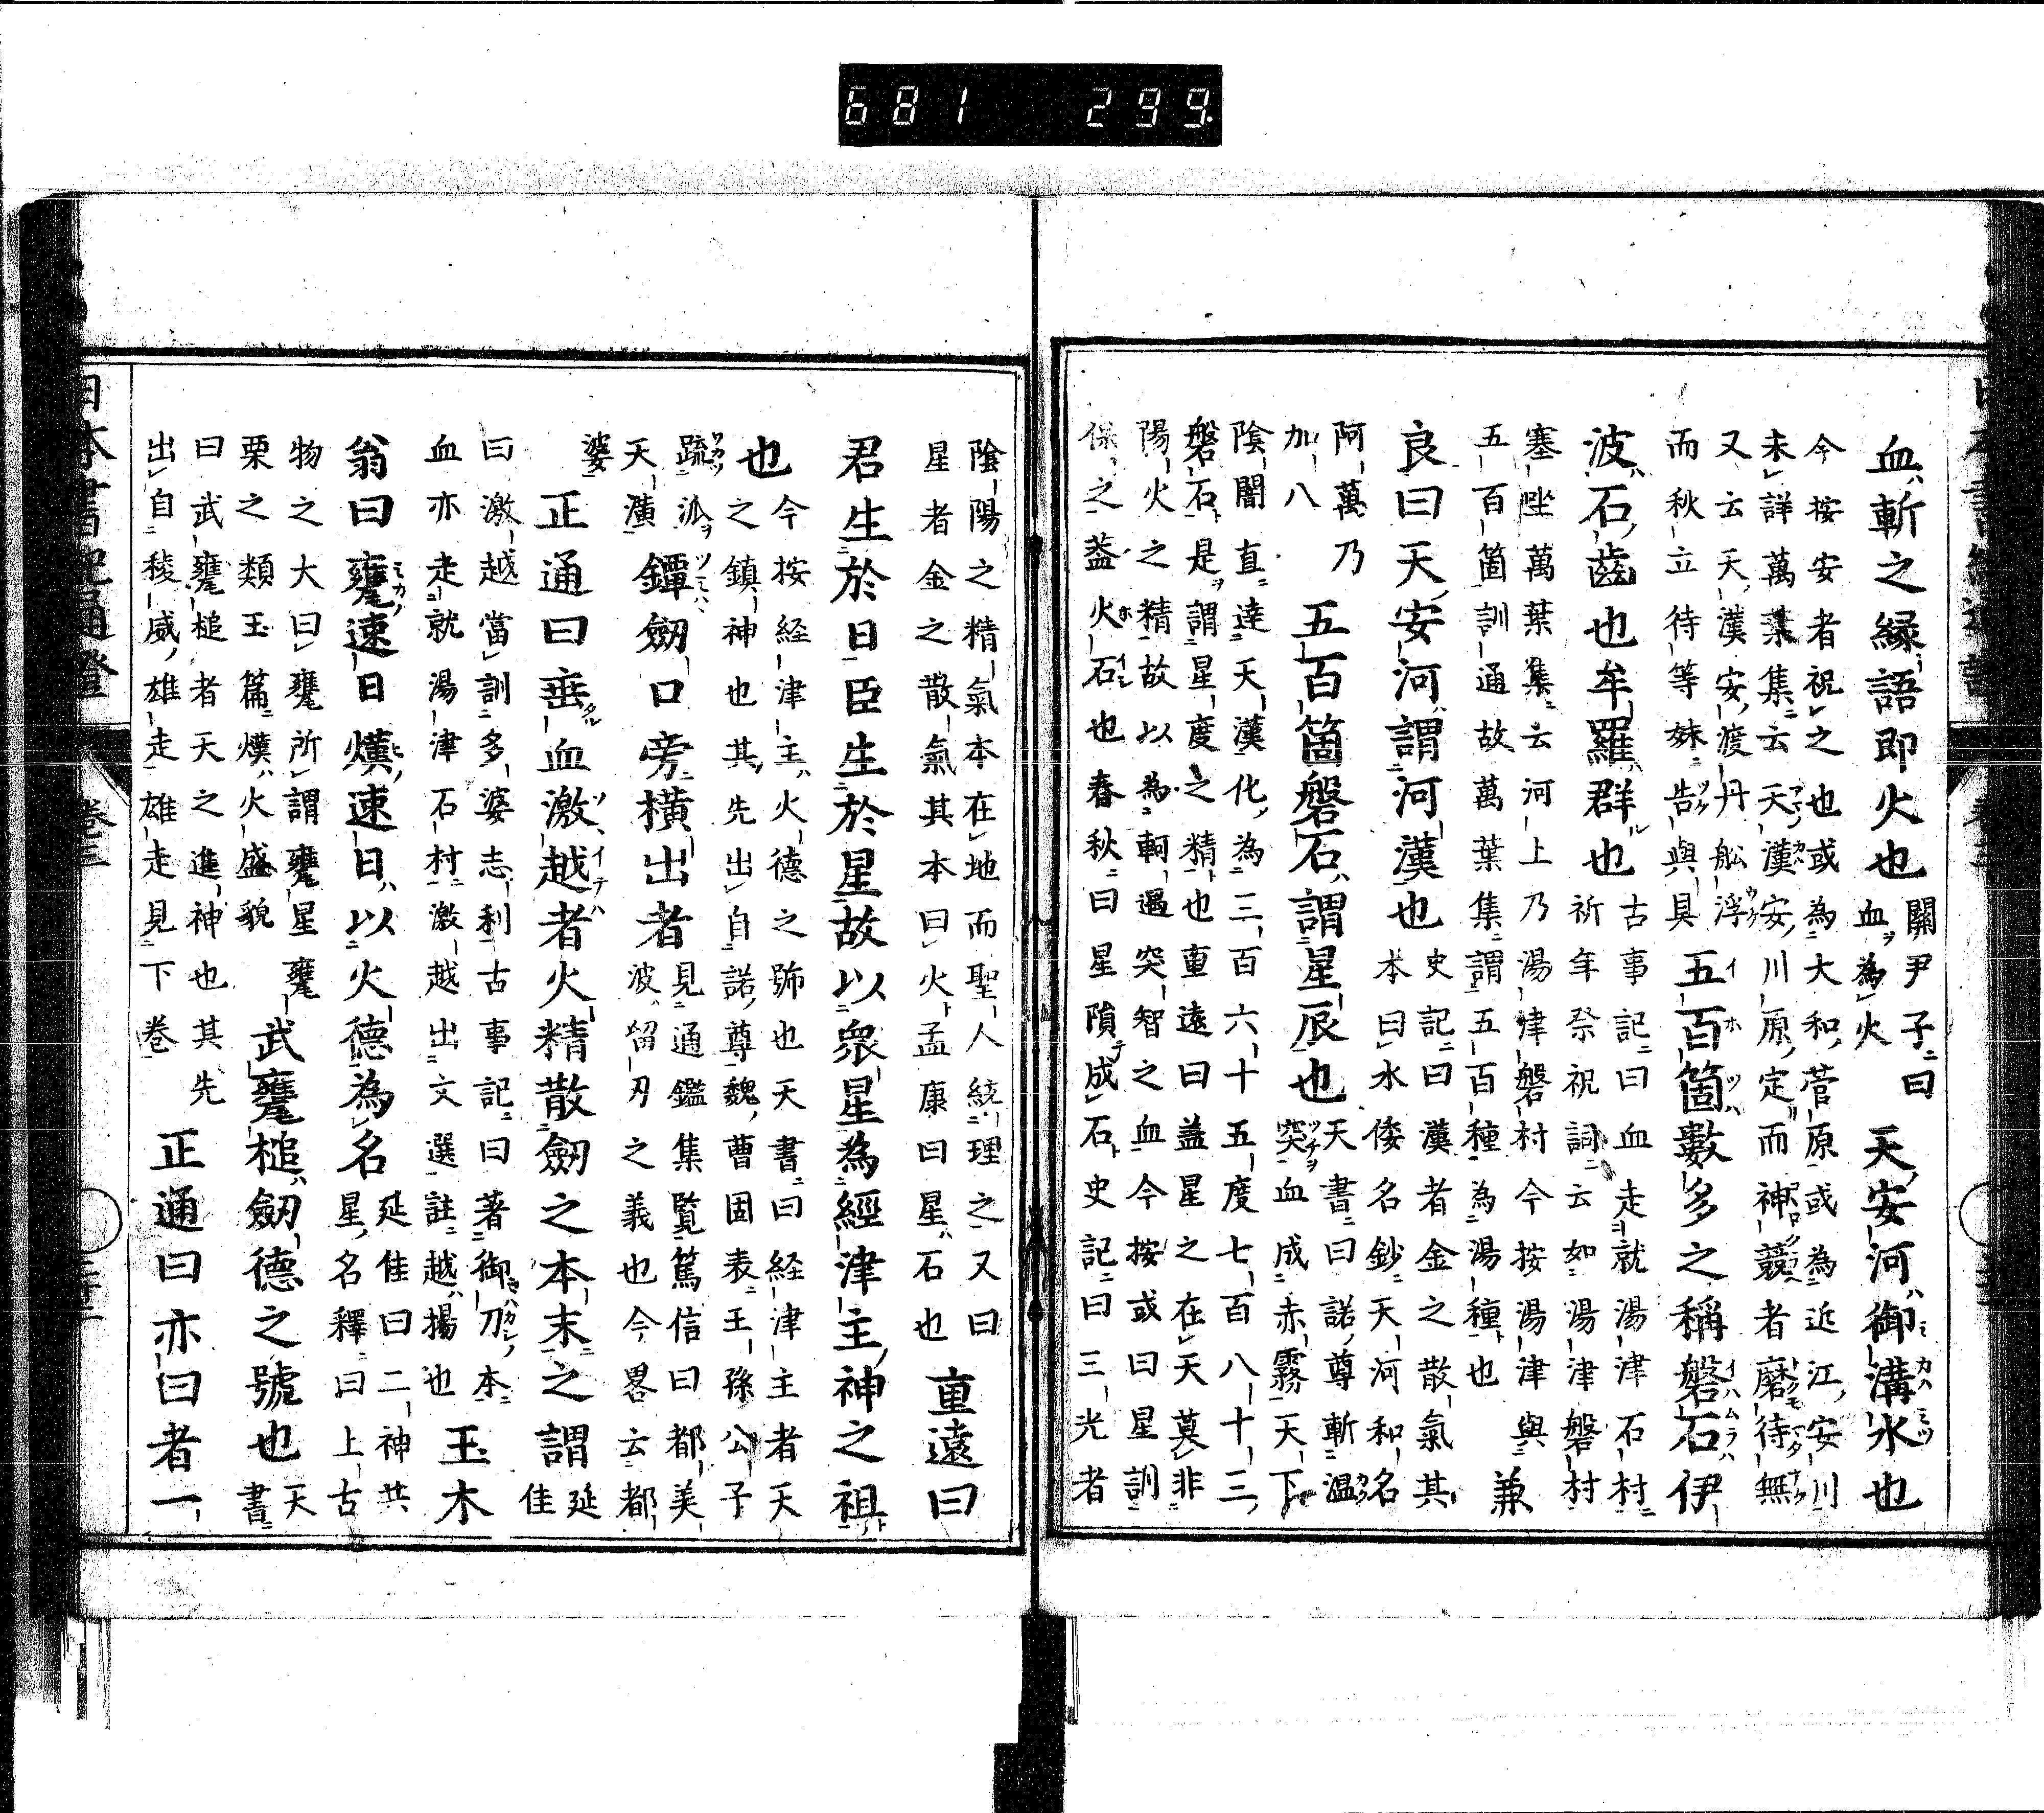 681 299
血斬之緣語即火也 關尹子曰
血為火 天安河御溝水也
今按安者祝之也或為大和菅原或為近江安川
未詳萬葉集云天漢安川原定而神競者磨待無
又云天漢安渡丹舩浮
而秋立待等妹告與具 五百箇數多之稱磐石伊
波石齒也牟羅群也 古事記曰血走就湯津石村
祈年祭祝詞云如湯津磐村
塞坐萬葉集云河上乃湯津磐村今按湯津與
五百箇訓通故萬葉集謂五百種為湯種也 兼
良曰天安河謂河漢也 史記曰漢者金之散氣其
本曰水倭名鈔天河和名
阿萬乃
加八 五百箇磐石謂星辰也 天書曰諾尊斬温
突血成赤霧天下
陰闇直達天漢化為三百六十五度七百八十三
磐石是謂星度之精也重遠曰蓋星之在天莫非
陽火之精故以為軻遇突智之血今按或曰星訓
保之蓋火石也春秋曰星隕成石史記曰三光者
陰陽之精氣本在地而聖人統理之又曰
星者金之散氣其本曰火孟康曰星石也 重遠曰
君生於日臣生於星故以衆星為經津主神之祖
也 今按経津主火德之號也天書曰経津主者天
之鎮神也其先出自諾尊魏曹固表王孫公子
疏派
天潢 鐔劒口旁橫出者 見通鑑集覽篤信曰都美
波留刃之義也今畧云都
婆 正通曰垂血激越者火精散劒之本末之謂 延
佳
曰激越當訓多婆志利古事記曰著御刀本
血亦走就湯津石村激越出文選註越揚也 玉木
翁曰甕速日熯速日以火德為名 延佳曰二神共
星名釋曰上古
物之大曰甕所謂甕星甕
栗之類玉篇熯火盛貌 武甕槌劒德之號也 天
書
曰武甕槌者天之進神也其先
出自稜威雄走雄走見下卷 正通曰亦曰者一
日本書紀通證 卷三